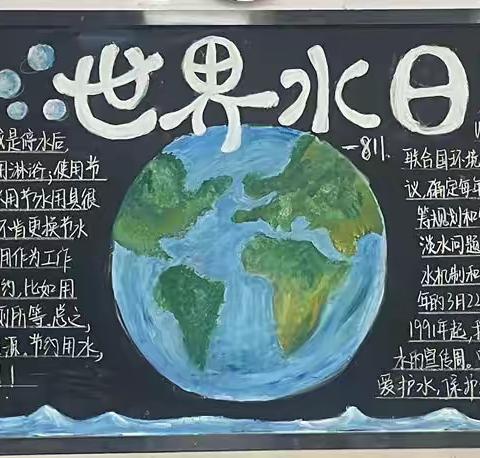 世界水日
-811.
或是停水后,
用淋浴;使用节
用节水用具很
不肯更换节水
用作为工作
约,比如用
厕所等,总之,
源,节约用水,
!
联合国环境
议,确定每年
筹规划和
淡水问题
水机制和
年的3月22
1991年起,
水的宣传周。
爱护水,保护